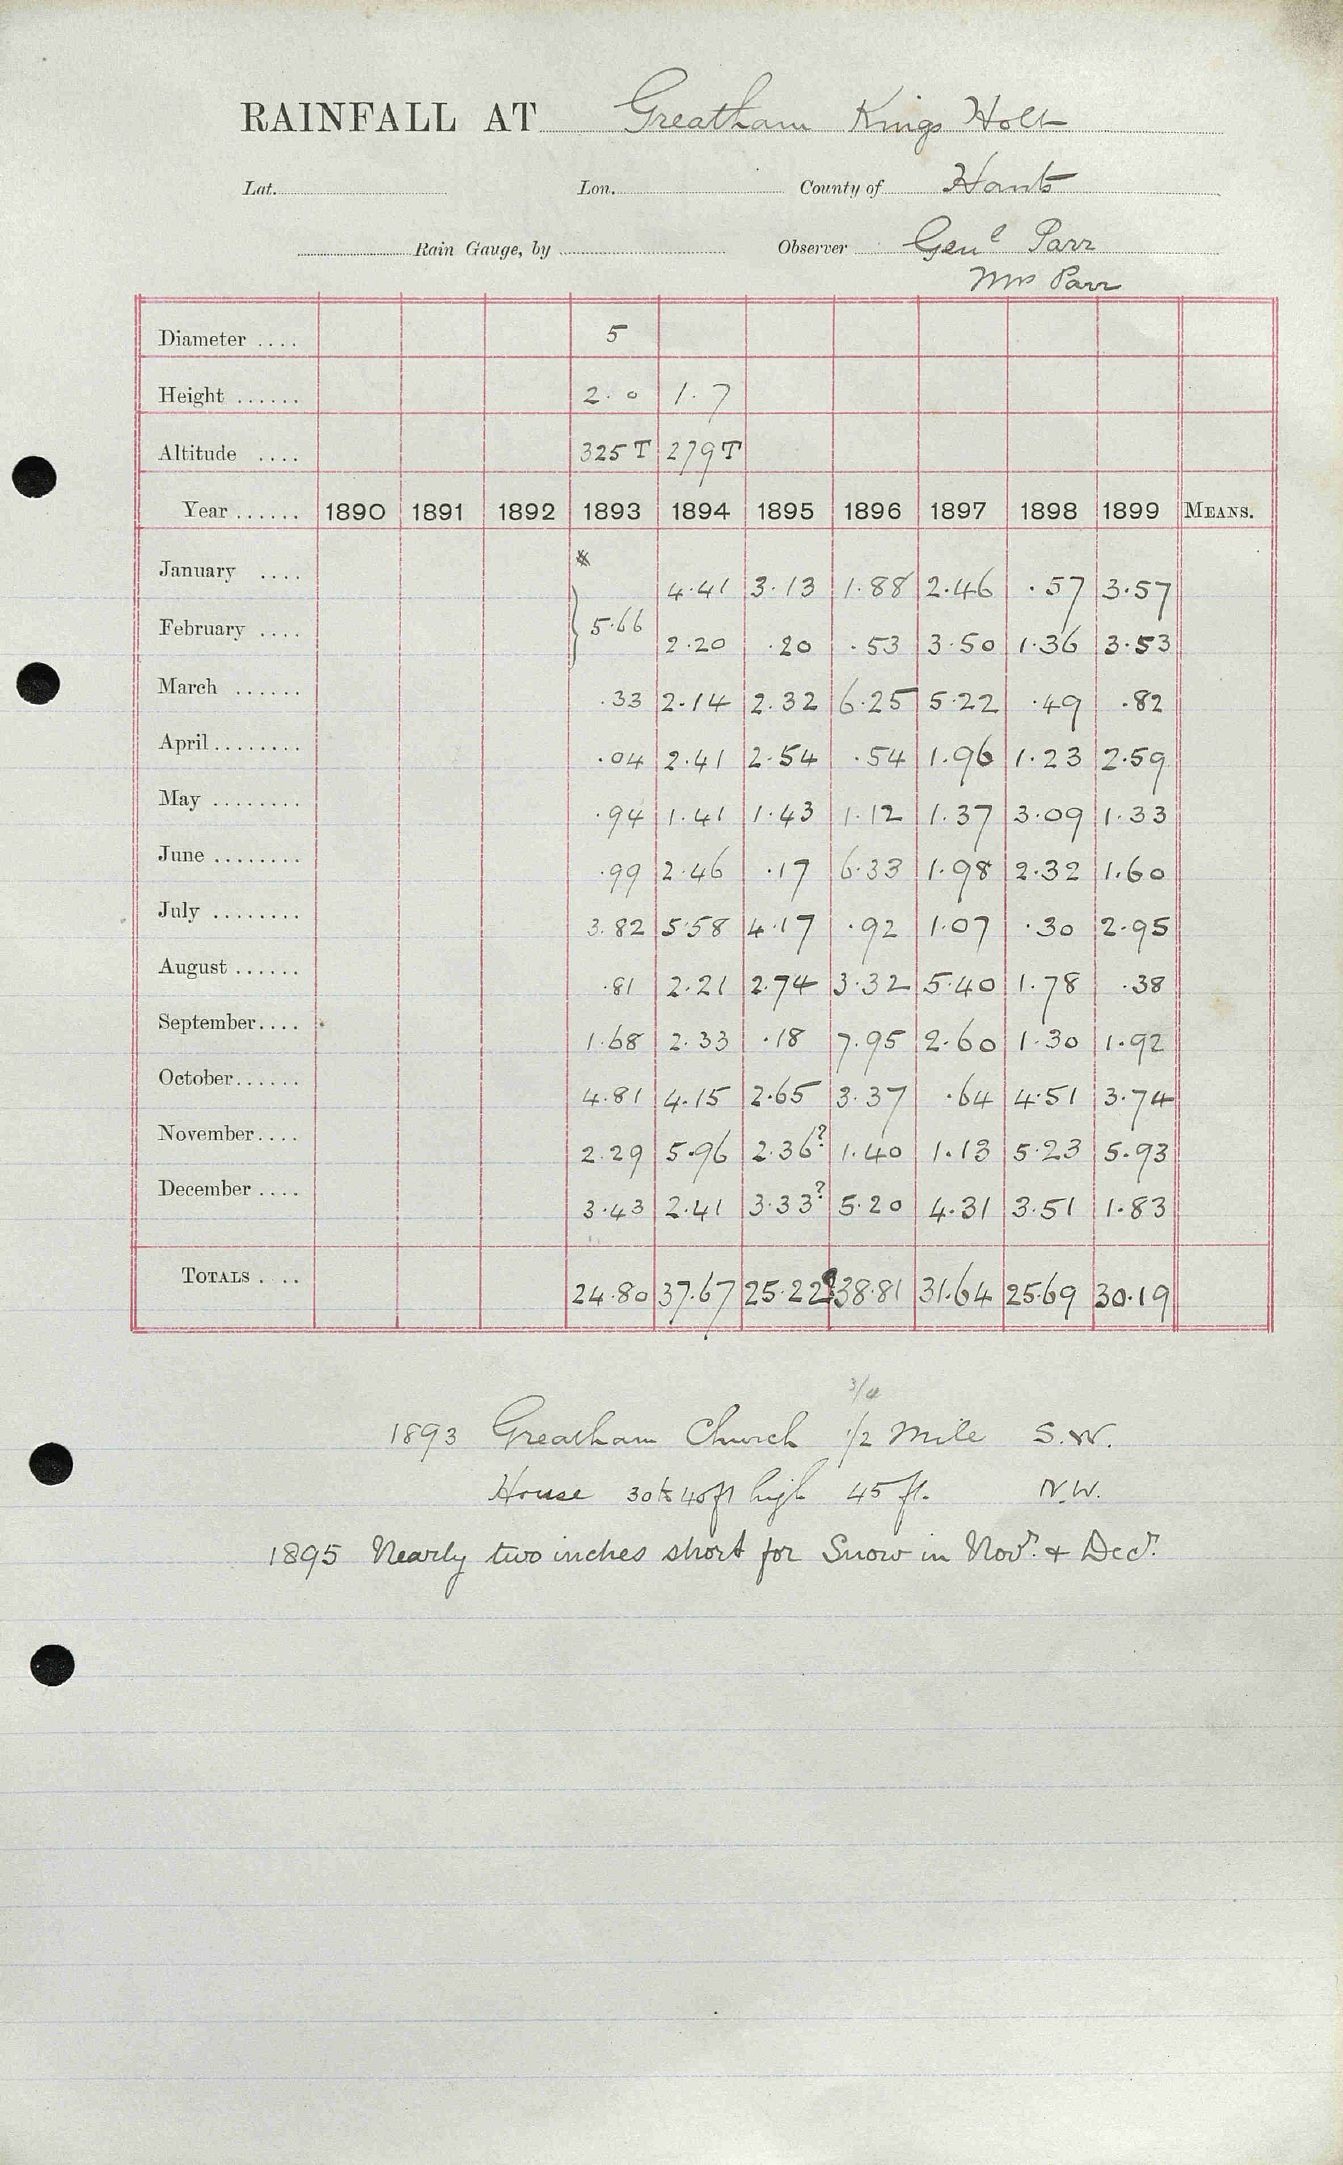 RAINFALL AT Greatham Kings Holt
Lat. Lon. County of Hants
Rain Gauge, by Observer Genl Parr
Mrs Parr
Diameter .... 5
Height ...... 2.0 1.7
Altitude .... 325T 279T
Year ...... 1890 1891 1892 1893 1894 1895 1896 1897 1898 1899 MEANS.
January .... * 4.41 3.13 1.88 2.46 .57 3.57
February .... } 5.66 2.20 .20 .53 3.50 1.36 3.53
March ...... .33 2.14 2.32 6.25 5.22 .49 .82
April ........ .04 2.41 2.54 .54 1.96 1.23 2.59
May ........ .94 1.41 1.43 1.12 1.37 3.09 1.33
June ........ .99 2.46 .17 6.33 1.98 2.32 1.60
July ........ 3.82 5.58 4.17 .92 1.07 .30 2.95
August ...... .81 2.21 2.74 3.32 5.40 1.78 .38
September.... 1.68 2.33 .18 7.95 2.60 1.30 1.92
October...... 4.81 4.15 2.65 3.37 .64 4.51 3.74
November.... 2.29 5.96 2.36? 1.40 1.13 5.23 5.93
December .... 3.43 2.41 3.33? 5.20 4.31 3.51 1.83
TOTALS .... 24.80 37.67 25.22? 38.81 31.64 25.69 30.19
3/4
1893 Greatham Church 1/2 Mile S.W.
House 30 to 40 ft high 45 ft. N.W.
1895 Nearly two inches short for Snow in Novr. & Decr.